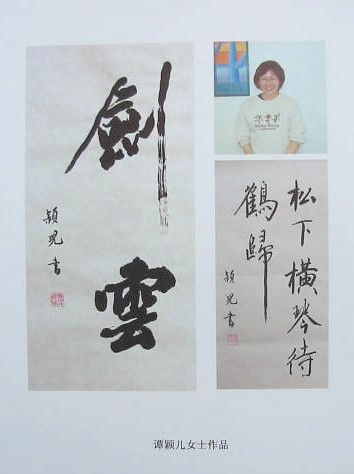 劍
雲
穎児書
松下橫琴待
鶴歸
穎児書
谭颖儿女士作品